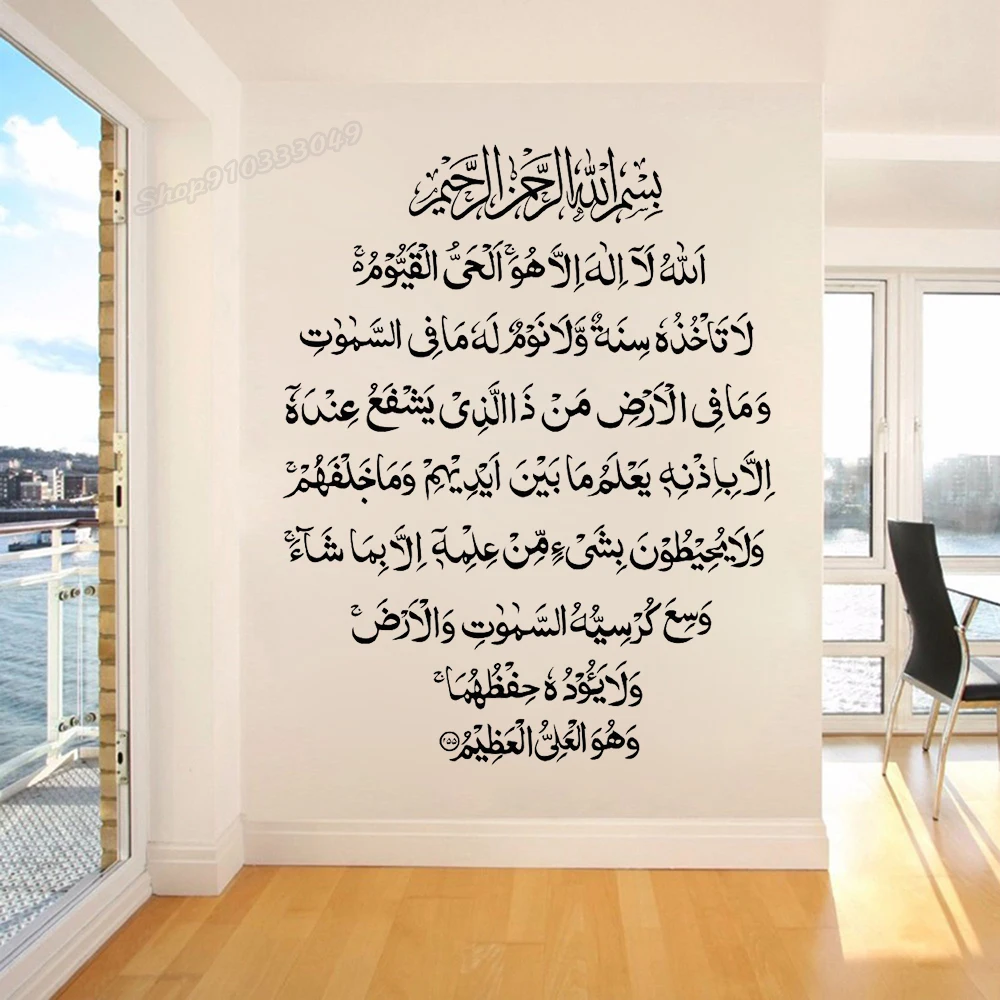 Shop910333049
بِسْمِ اللهِ الرَّحْمٰنِ الرَّحِيْمِ
اَللّٰهُ لَآ اِلٰهَ اِلَّا هُوَۚ اَلْحَىُّ الْقَيُّوْمُ ەۚ
لَا تَاْخُذُهٗ سِنَةٌ وَّلَا نَوْمٌ لَهٗ مَا فِى السَّمٰوٰتِ
وَمَا فِى الْاَرْضِ مَنْ ذَا الَّذِىْ يَشْفَعُ عِنْدَهٗٓ
اِلَّا بِاِذْنِهٖ يَعْلَمُ مَا بَيْنَ اَيْدِيْهِمْ وَمَا خَلْفَهُمْۚ
وَلَا يُحِيْطُوْنَ بِشَىْءٍ مِّنْ عِلْمِهٖٓ اِلَّا بِمَا شَآءَۚ
وَسِعَ كُرْسِيُّهُ السَّمٰوٰتِ وَالْاَرْضَۚ
وَلَا يَـُٔوْدُهٗ حِفْظُهُمَاۚ
وَهُوَ الْعَلِىُّ الْعَظِيْمُ ۝٢٥٥